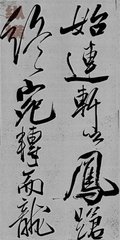 始連軒以鳳蹌
終宛轉而龍